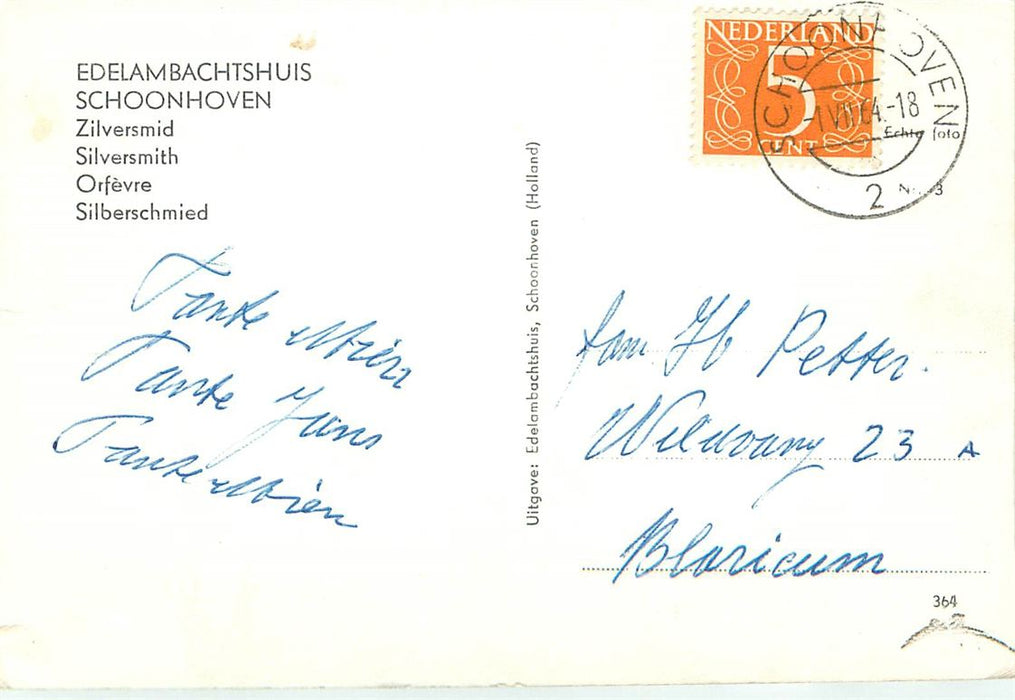 EDELAMBACHTSHUIS
SCHOONHOVEN
Zilversmid
Silversmith
Orfèvre
Silberschmied
Tante
Tante Jans
Tante Mien
Uitgave: Edelambachtshuis, Schoonhoven (Holland)
NEDERLAND
5
CENT
SCHOONHOVEN
-1 VII 64.-18
2
Echte foto
3
Fam. Petter.
23 A
Blaricum
364